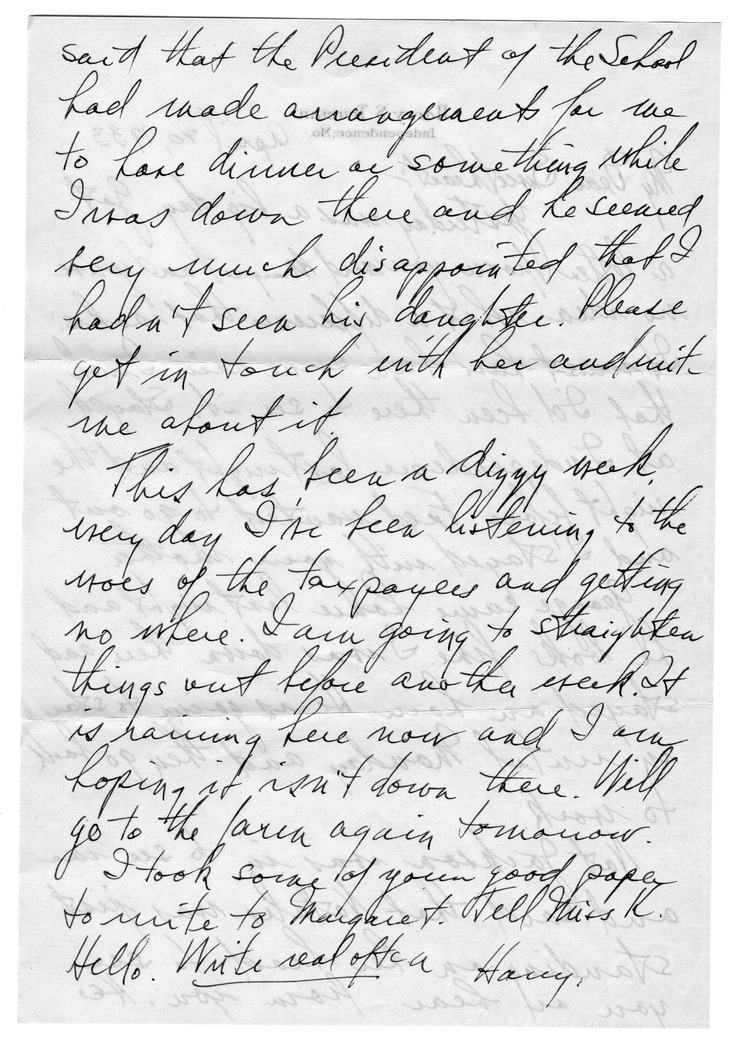 said that the President of the School
had made arrangements for me
to have dinner or something while
I was down there and he seemed
very much disappointed that I
hadn't seen his daughter. Please
get in touch with her and write
me about it.
This has been a dizzy week,
every day I've been listening to the
woes of the taxpayers and getting
no where. I am going to straighten
things out before another week. It
is raining here now and I am
hoping it isn't down there. Will
go to the farm again tomorrow.
I took some of your good paper
to write to Margaret. Tell Miss K.
Hello. Write real often
Harry.